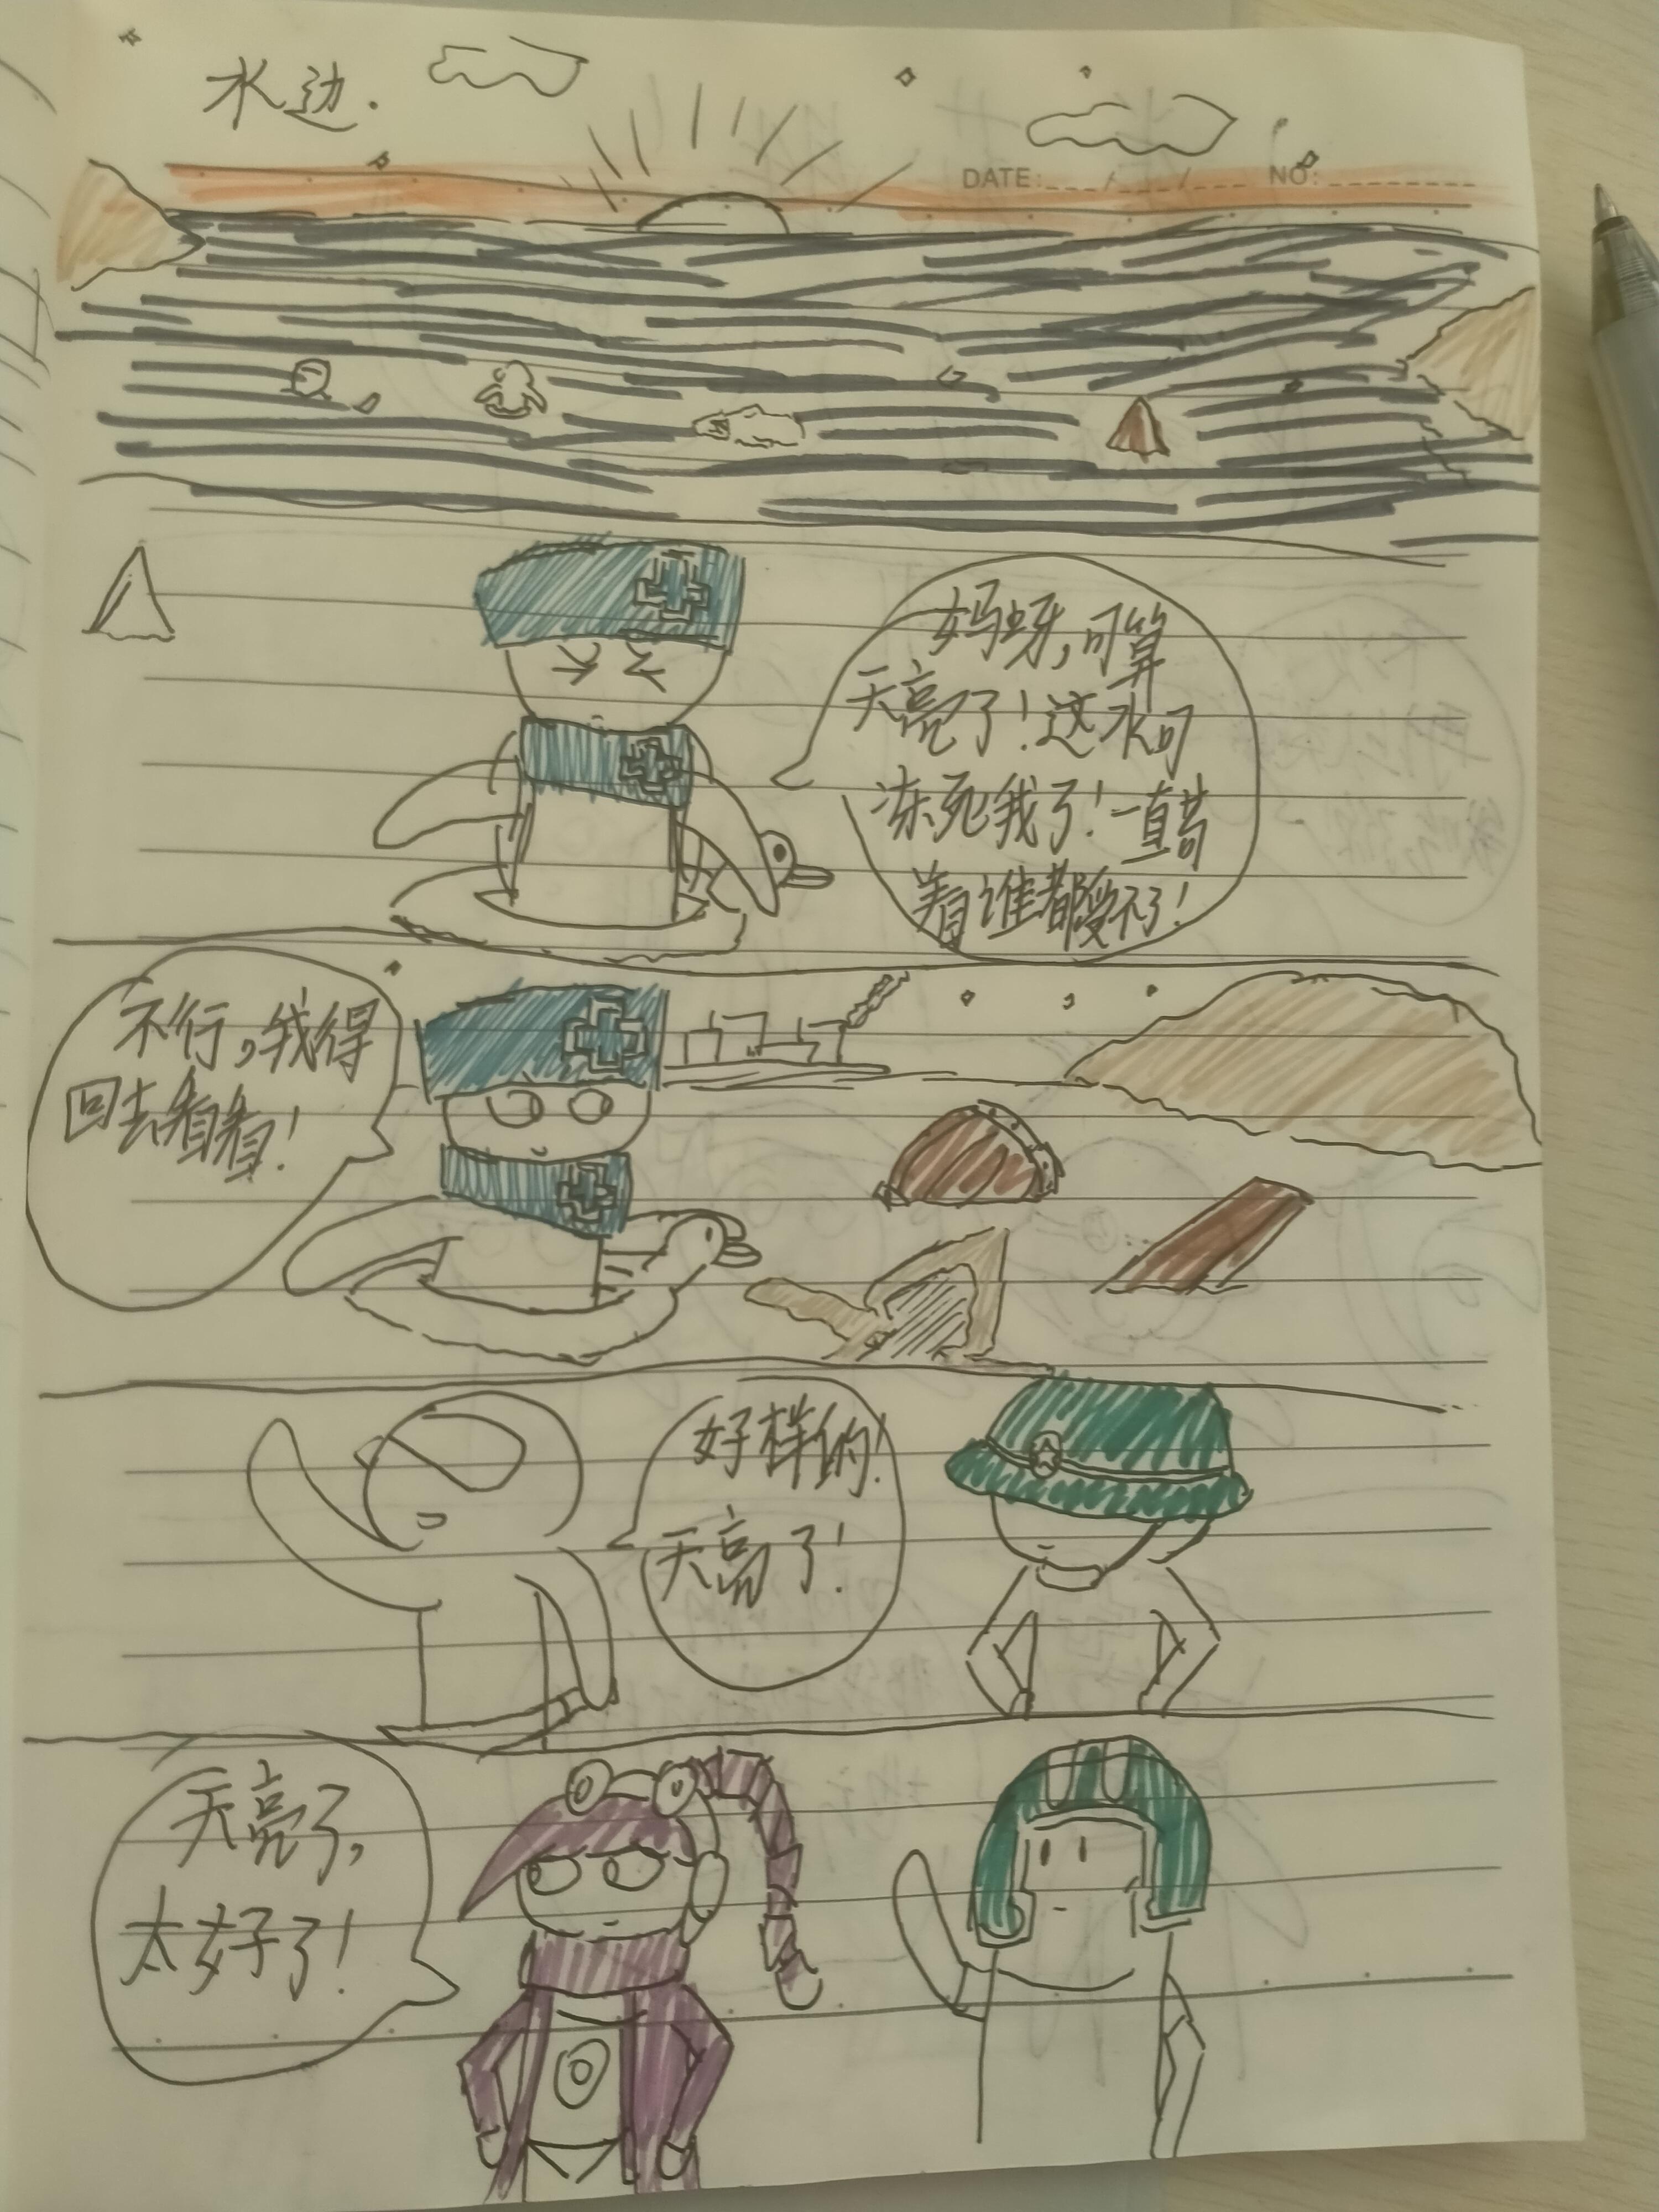 水边.
DATE: NO:
妈呀,可算
天亮了!这水可
冻死我了!一直黄
着谁都受不了!
不行,我得
回去看看!
好样的!
天亮了!
天亮了,
太好了!